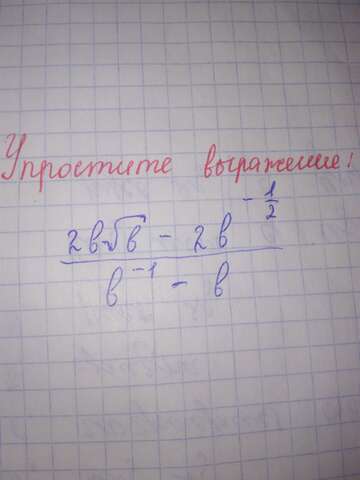 Упростите выражение!
2в√в - 2в^(-1/2)
в^(-1) - в